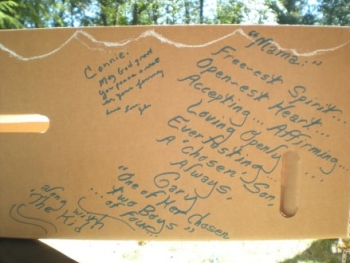 Connie,
May God grant
you peace & rest
on your journey
"Mama:"
Free-est Spirit...
Open-est Heart...
Accepting... Affirming...
Loving Openly
Everlasting...
A "chosen" Son,
Always,
Gary,
"One of Her Chosen
...Two Boys"
of Four.
With
"The Kid"